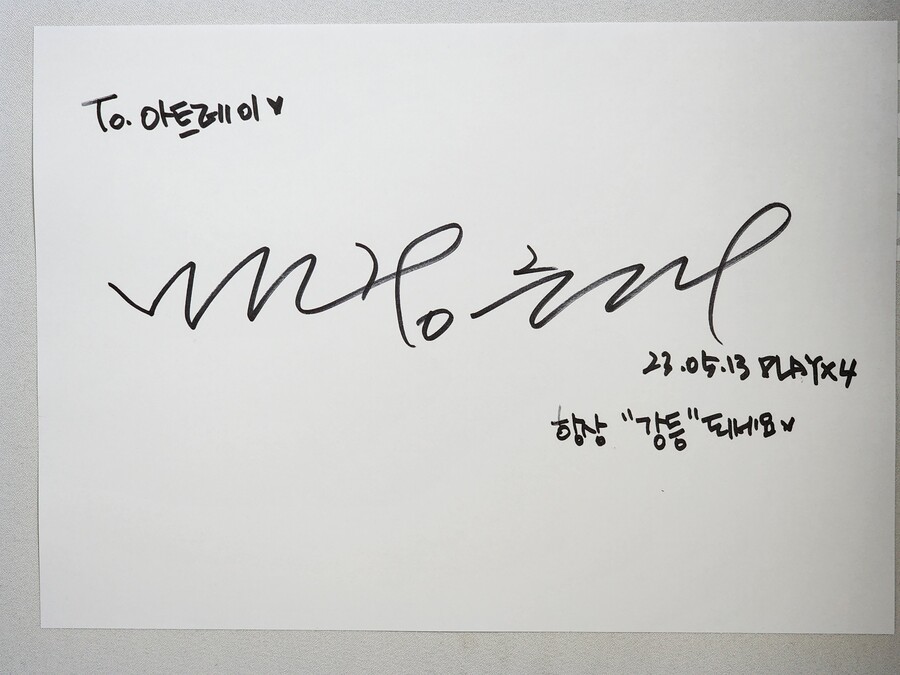 To. 아트레이♥
23.05.13 PLAYX4
항상 "강등" 되세요♥